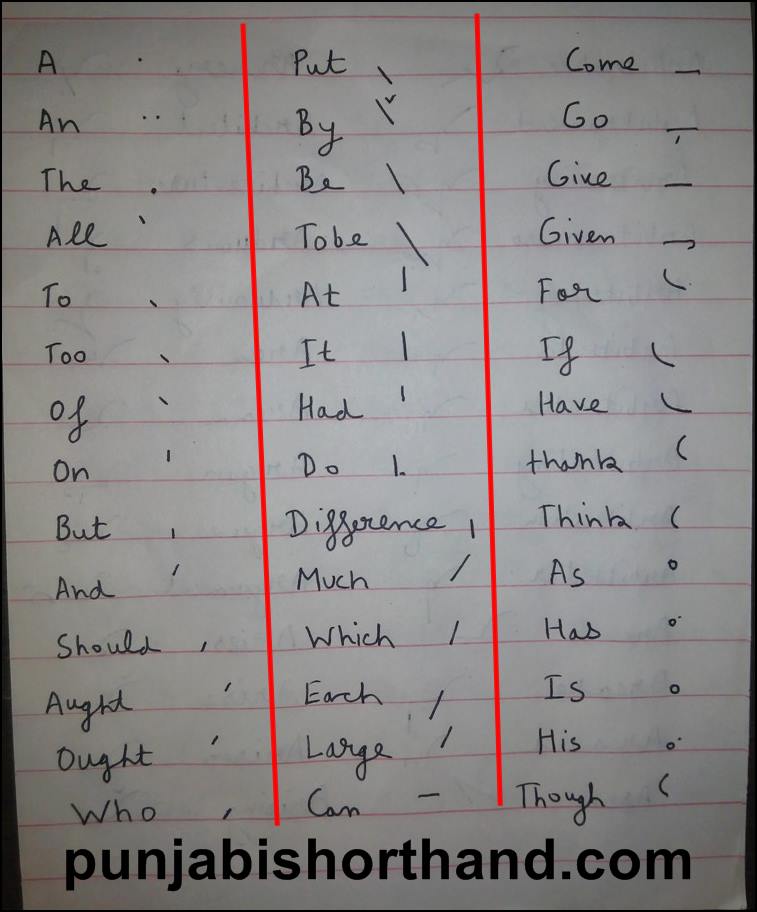 A Put Come
An By Go
The Be Give
All Tobe Given
To At For
Too It If
Of Had Have
On Do thank
But Difference Think
And Much As
Should Which Has
Aught Each Is
Ought Large His
Who Can Though
punjabishorthand.com